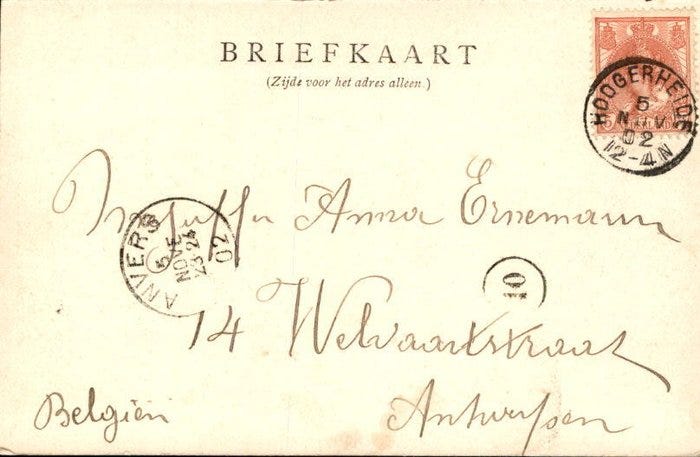 BRIEFKAART
(Zijde voor het adres alleen.)
HOOGERHEIDE
5
NOV
02
12-4N
Anna Ernemann
ANVERS
5
NOVE
23-24
02
10
14 Welvaartstraat
Belgiën
Antwerpen